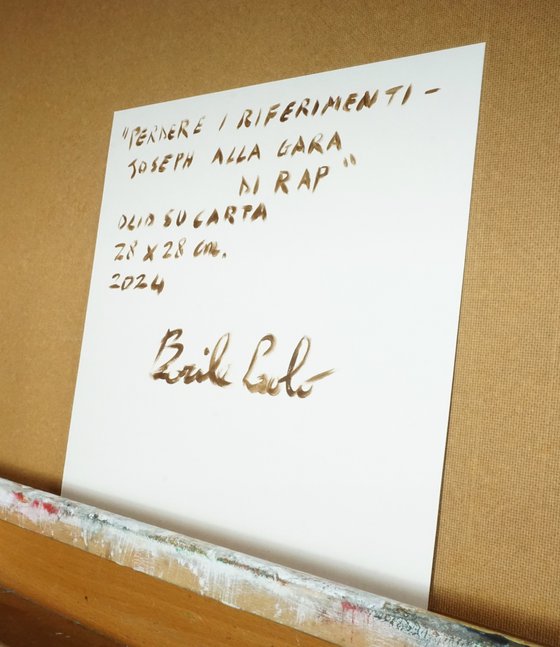 "PERDERE I RIFERIMENTI -
JOSEPH ALLA GARA
DI RAP"
OLIO SU CARTA
28 X 28 cm.
2024
Borile Paolo